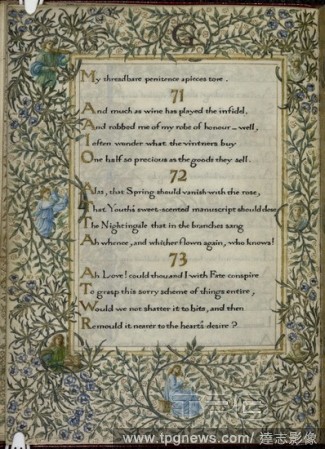 G
My threadbare penitence apieces tore.
71
And much as wine has played the infidel,
And robbed me of my robe of honour — well,
I often wonder what the vintners buy
One half so precious as the goods they sell.
72
Alas, that Spring should vanish with the rose,
That Youth's sweet-scented manuscript should close
The Nightingale that in the branches sang
Ah whence, and whither flown again, who knows!
73
Ah Love! could thou and I with Fate conspire
To grasp this sorry scheme of things entire,
Would we not shatter it to bits, and then
Remould it nearer to the heart's desire?
www.tpgnews.com/ 達志影像